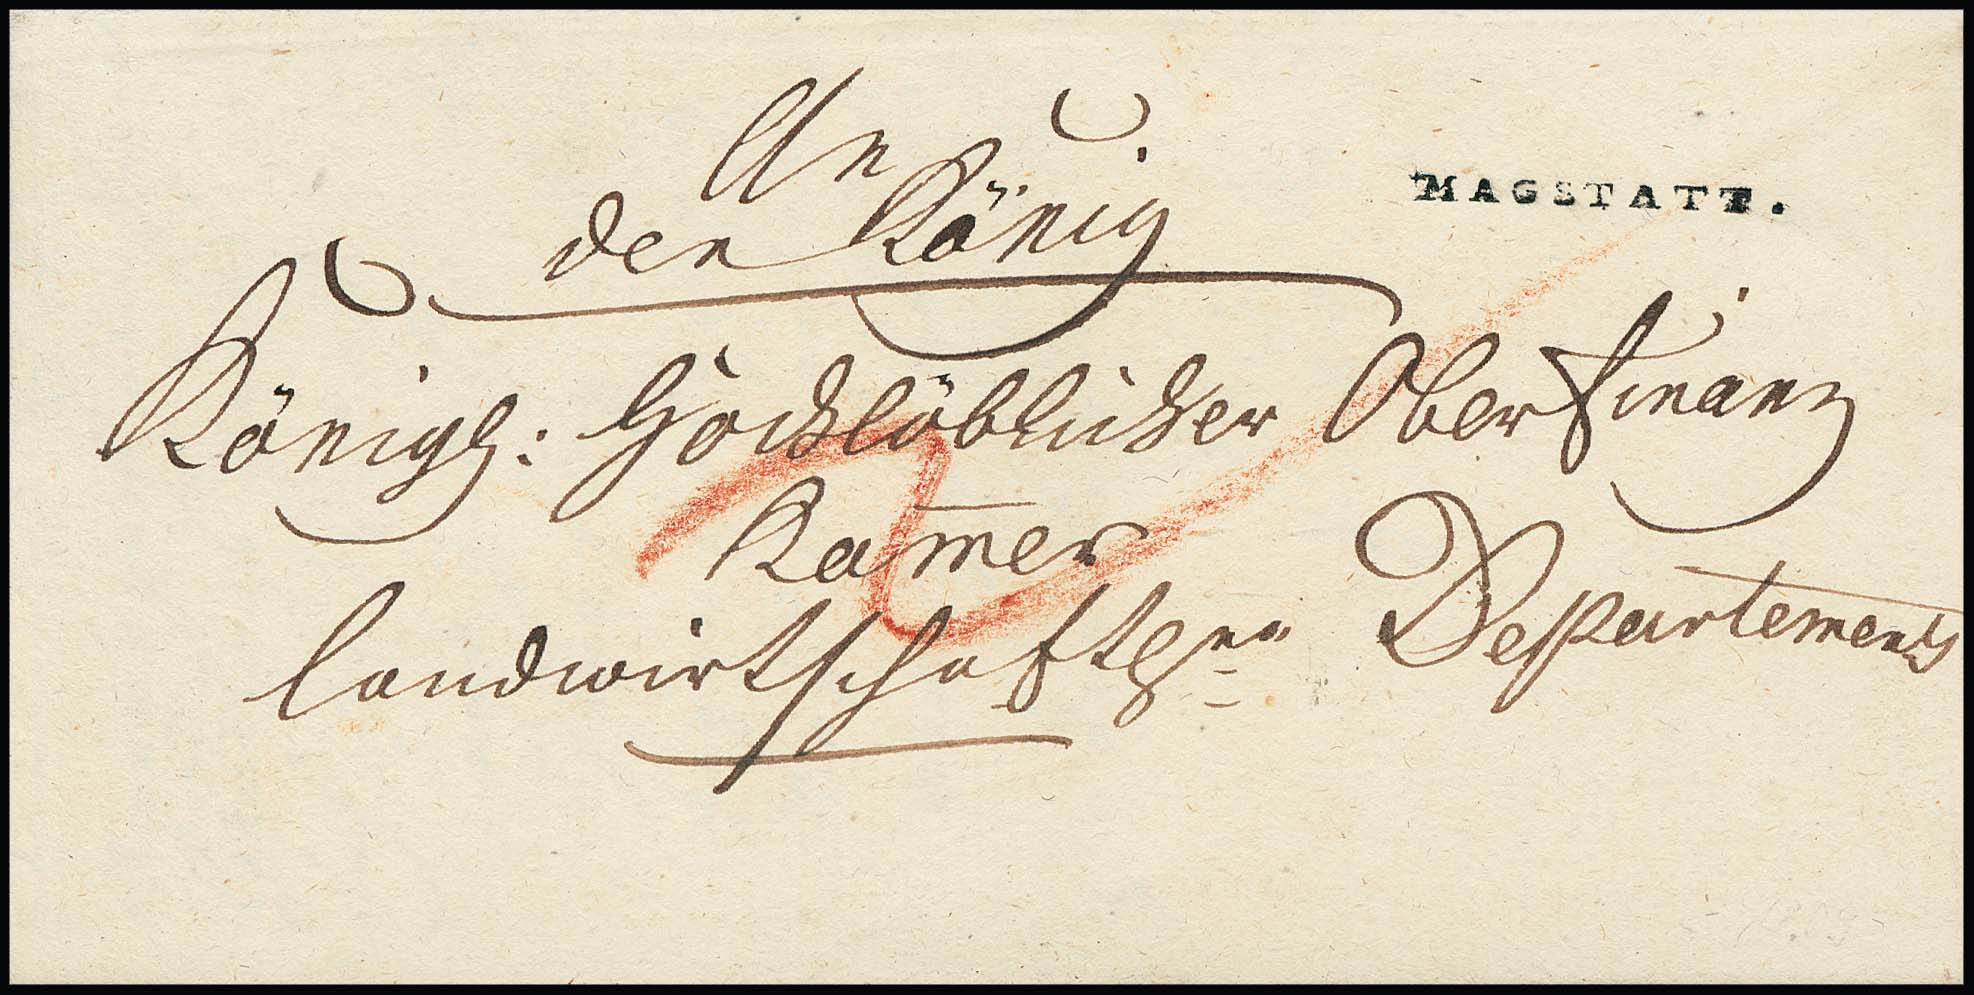 An
MAGSTATT.
den König
Königl: Hochlöblicher Ober Finanz
Kam̅er
landwirthschaftl Departements